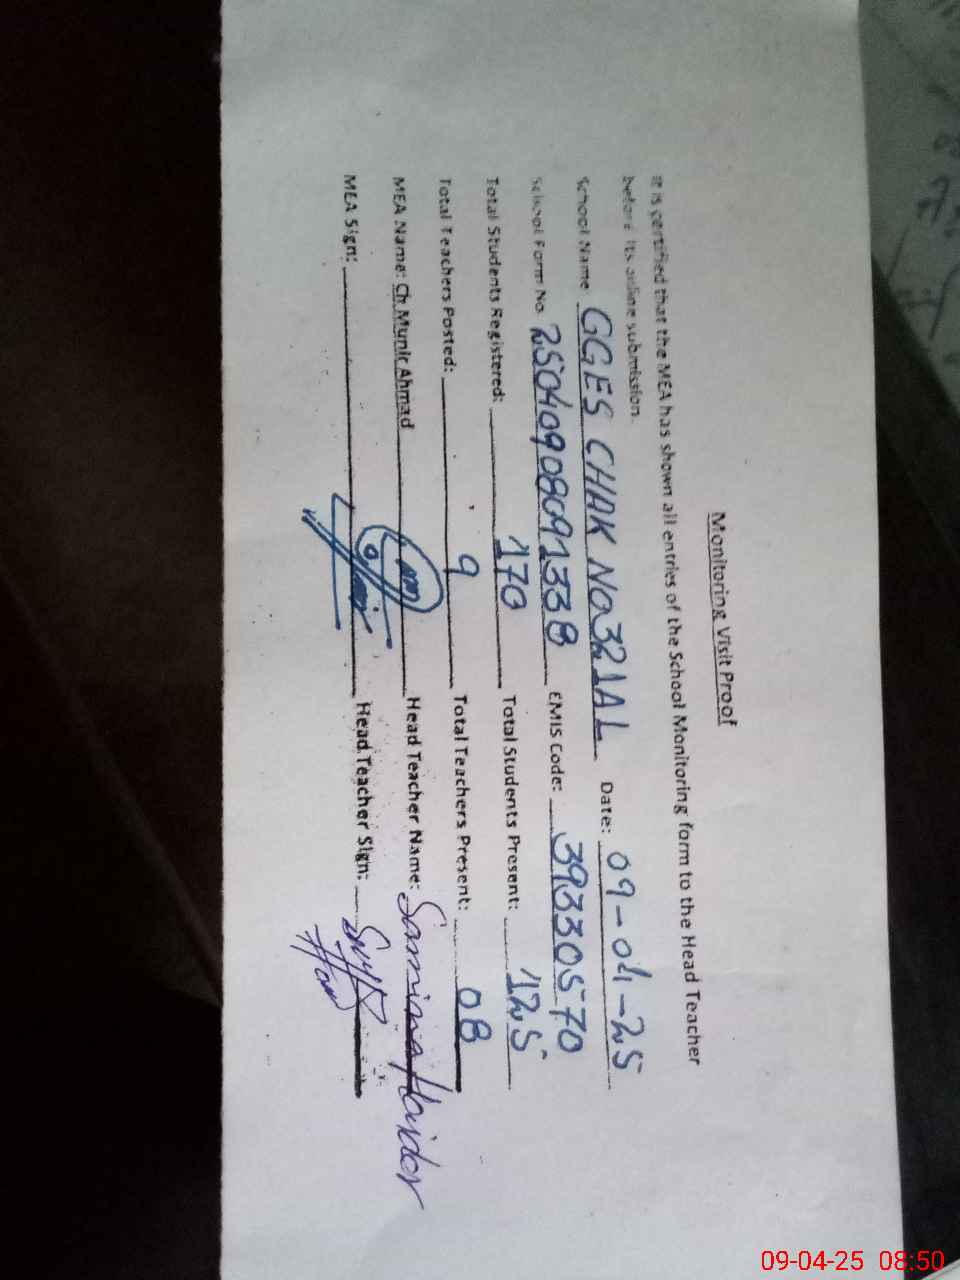 Monitoring Visit Proof
It is certified that the MEA has shown all entries of the School Monitoring form to the Head Teacher
before its online submission.
School Name GGES CHAK No321AL Date: 09-04-25
School Form No. 25040908091338 EMIS Code: 39330570
Total Students Registered: 170 Total Students Present: 125
Total Teachers Posted: 9 Total Teachers Present: 08
MEA Name: Ch Munir Ahmad Head Teacher Name: Samina Haider
MEA Sign: Head Teacher Sign:
09-04-25 08:50